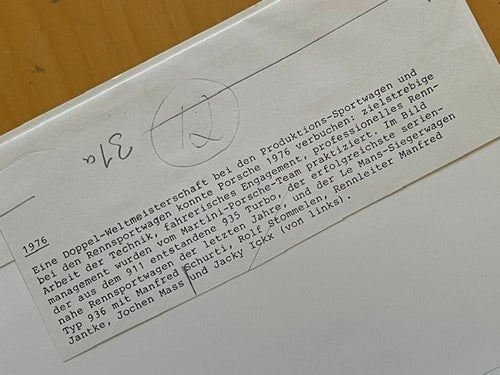 12
31a
1976
Eine Doppel-Weltmeisterschaft bei den Produktions-Sportwagen und
bei den Rennsportwagen konnte Porsche 1976 verbuchen: zielstrebige
Arbeit der Technik, fahrerisches Engagement, professionelles Renn-
management wurden vom Martini-Porsche-Team praktiziert. Im Bild
der aus dem 911 entstandene 935 Turbo, der erfolgreichste serien-
nahe Rennsportwagen der letzten Jahre, und der Le Mans-Siegerwagen
Typ 936 mit Manfred Schurti, Rolf Stommelen, Rennleiter Manfred
Jantke, Jochen Mass und Jacky Ickx (von links).